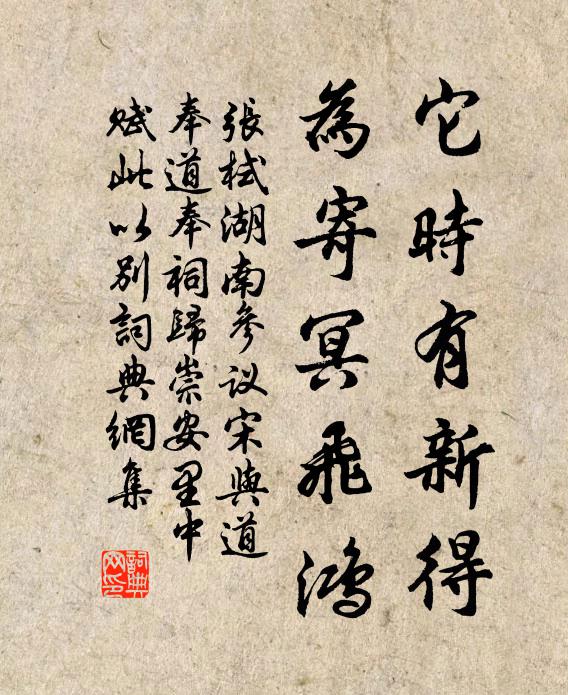 它時有新得
為寄冥飛鴻
張栻湖南參议宋與道
奉道奉祠歸崇安里中
賦此以别詞典網集
詞典网印